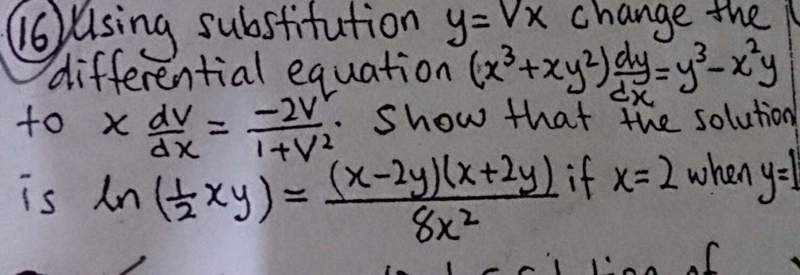 (16) Using substitution y=Vx change the
differential equation (x³+xy²) dy/dx = y³-x²y
to x dv/dx = -2V/1+V². Show that the solution
is ln(½xy) = (x-2y)(x+2y)/8x² if x=2 when y=1